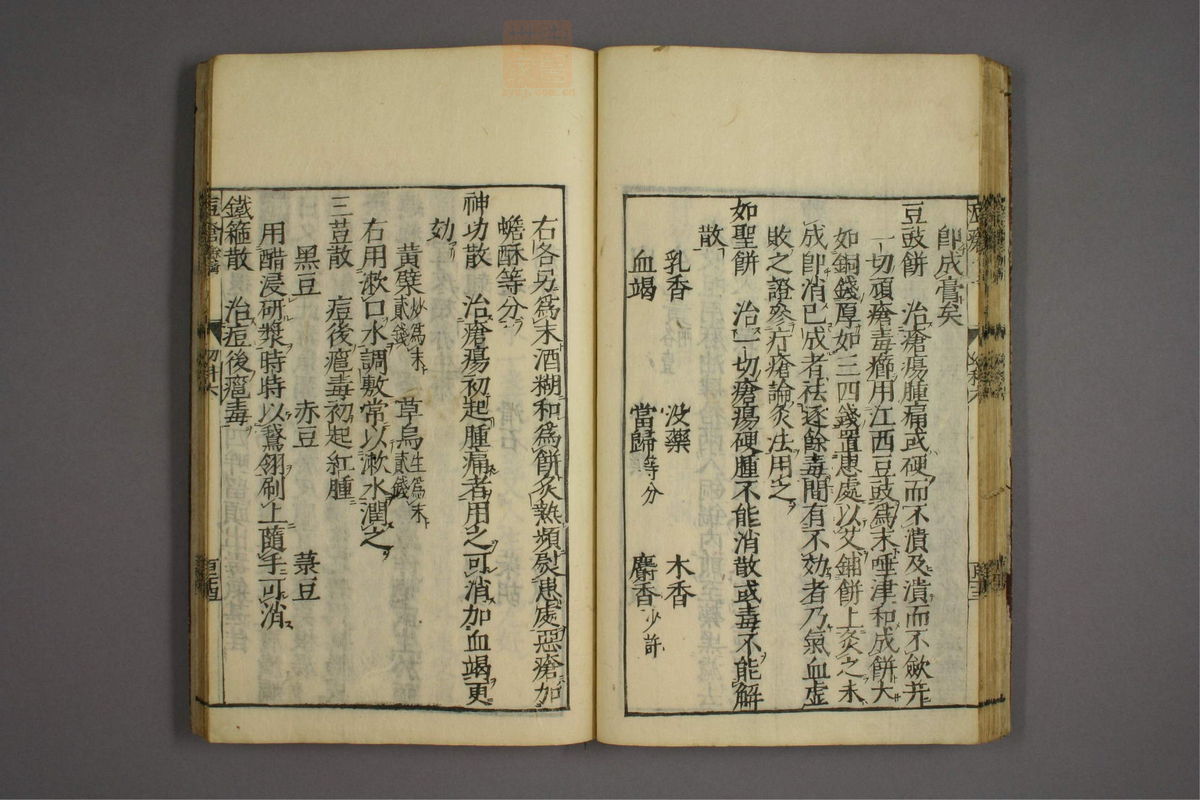 即成膏矣
豆豉餅　治瘡瘍腫痛或硬而不潰及潰而不斂并
一切頑瘡毒癤用江西豆豉爲末唾津和成餅大
如銅錢厚如三四錢置患處以艾鋪餅上灸之未
成即消已成者祛逐餘毒間有不効者乃氣血虚
敗之證參疔瘡論灸法用之
如聖餅　治一切瘡瘍硬腫不能消散或毒不能解
散
乳香　没藥　木香
血竭　當歸等分　麝香少許
右各另爲末酒糊和爲餅炙熱頻熨患處惡瘡加
蟾酥等分
神功散　治瘡瘍初起腫痛者用之可消加血竭更
効
黃蘗炒爲末貳錢　草烏生爲末貳錢
右用漱口水調敷常以漱水潤之
三荳散　痘後癰毒初起紅腫
黑豆　赤豆　菉豆
用醋浸研漿時時以鵞翎刷上隨手可消
鐵箍散　治痘後癰毒